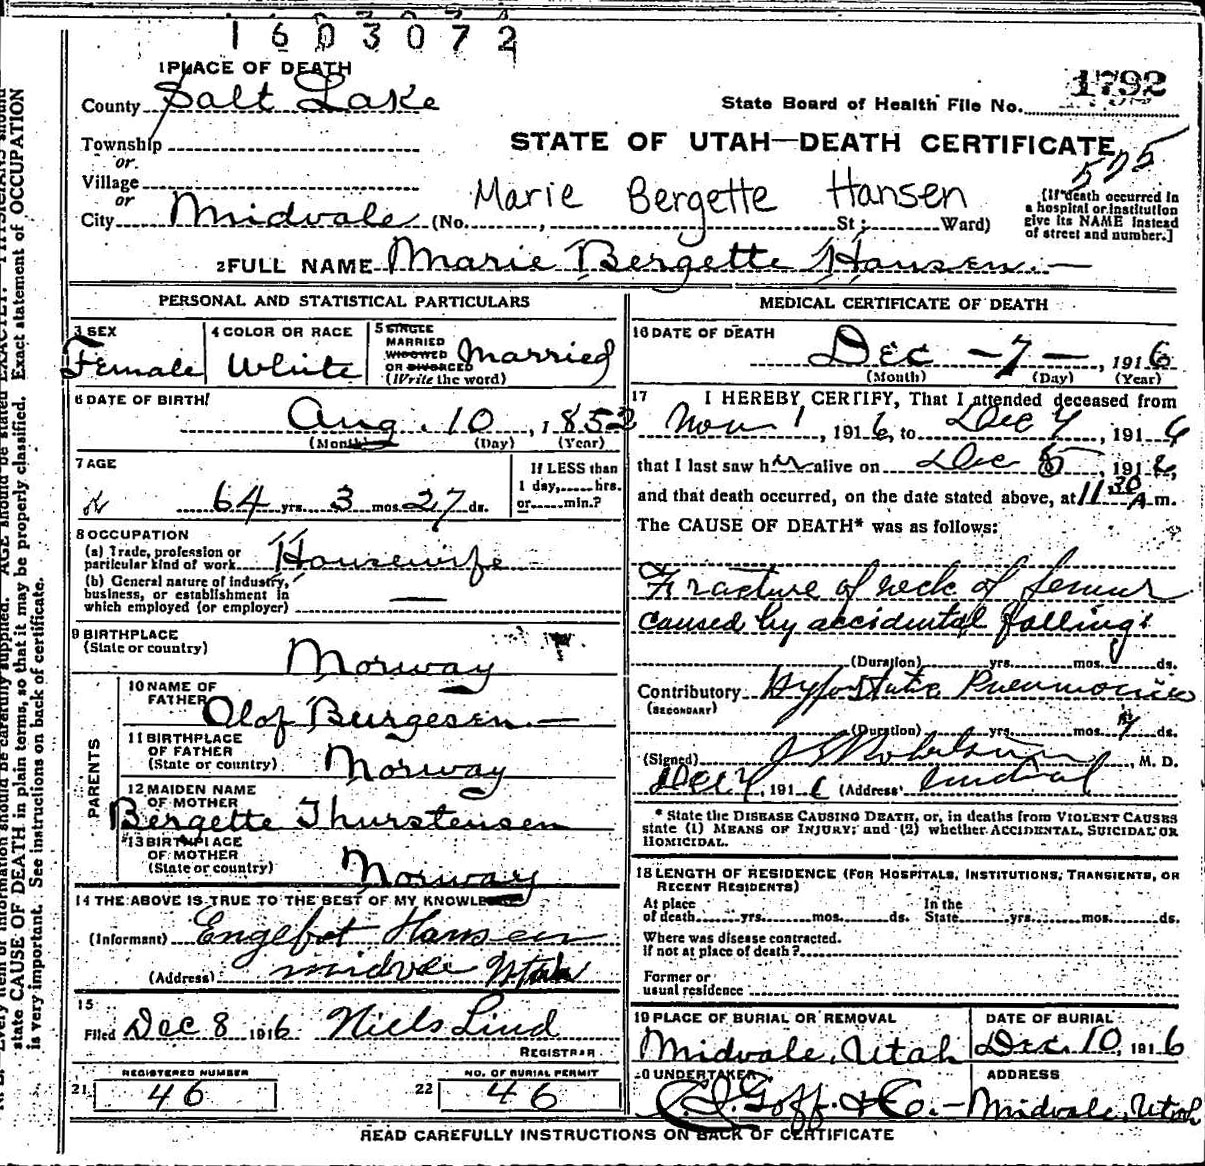 1603072
1 PLACE OF DEATH
County Salt Lake
1792
State Board of Health File No.
Township
or
Village
or
City Midvale (No. , St; Ward)
STATE OF UTAH—DEATH CERTIFICATE
575
Marie Bergette Hansen
[If death occurred in
a hospital or institution
give its NAME instead
of street and number.]
2 FULL NAME Marie Bergette Hansen.—
PERSONAL AND STATISTICAL PARTICULARS
3 SEX
Female
4 COLOR OR RACE
White
5 SINGLE
MARRIED
WIDOWED
OR DIVORCED
(Write the word)
Married
6 DATE OF BIRTH
Aug. 10, 1852
(Month) (Day) (Year)
7 AGE
64 yrs. 3 mos. 27 ds.
If LESS than
1 day, hrs.
or min.?
8 OCCUPATION
(a) Trade, profession or
particular kind of work Housewife
(b) General nature of industry,
business, or establishment in
which employed (or employer) —
9 BIRTHPLACE
(State or country)
Norway
PARENTS
10 NAME OF
FATHER Olof Burgesen.—
11 BIRTHPLACE
OF FATHER
(State or country) Norway
12 MAIDEN NAME
OF MOTHER
Bergette Thurstensen
13 BIRTHPLACE
OF MOTHER
(State or country) Norway
14 THE ABOVE IS TRUE TO THE BEST OF MY KNOWLEDGE
(Informant) Engebret Hansen
(Address) Midvale Utah
15
Filed Dec 8 1916 Niels Lind
REGISTRAR
REGISTERED NUMBER
21 46
NO. OF BURIAL PERMIT
22 46
MEDICAL CERTIFICATE OF DEATH
16 DATE OF DEATH
Dec — 7 —, 1916
(Month) (Day) (Year)
17 I HEREBY CERTIFY, That I attended deceased from
Nov 1, 1916, to Dec 7, 1916
that I last saw her alive on Dec 5, 1916,
and that death occurred, on the date stated above, at 11 30 A m.
The CAUSE OF DEATH* was as follows:
Fracture of neck of femur
caused by accidental falling
(Duration) yrs. mos. ds.
Contributory Hypostatic Pneumonia
(SECONDARY)
(Duration) yrs. mos. 7 ds.
(Signed) , M. D.
Dec 7, 1916 (Address) Midvale
* State the DISEASE CAUSING DEATH, or, in deaths from VIOLENT CAUSES
state (1) MEANS OF INJURY; and (2) whether ACCIDENTAL, SUICIDAL OR
HOMICIDAL.
18 LENGTH OF RESIDENCE (FOR HOSPITALS, INSTITUTIONS, TRANSIENTS, OR
RECENT RESIDENTS)
At place
of death yrs. mos. ds.
In the
State yrs. mos. ds.
Where was disease contracted.
If not at place of death?
Former or
usual residence
19 PLACE OF BURIAL OR REMOVAL
Midvale, Utah
DATE OF BURIAL
Dec. 10, 1916
20 UNDERTAKER
Goff & Co.—
ADDRESS
Midvale, Utah
READ CAREFULLY INSTRUCTIONS ON BACK OF CERTIFICATE
Every item of information should be carefully supplied. AGE should be stated EXACTLY. PHYSICIANS should
state CAUSE OF DEATH in plain terms, so that it may be properly classified. Exact statement of OCCUPATION
is very important. See instructions on back of certificate.